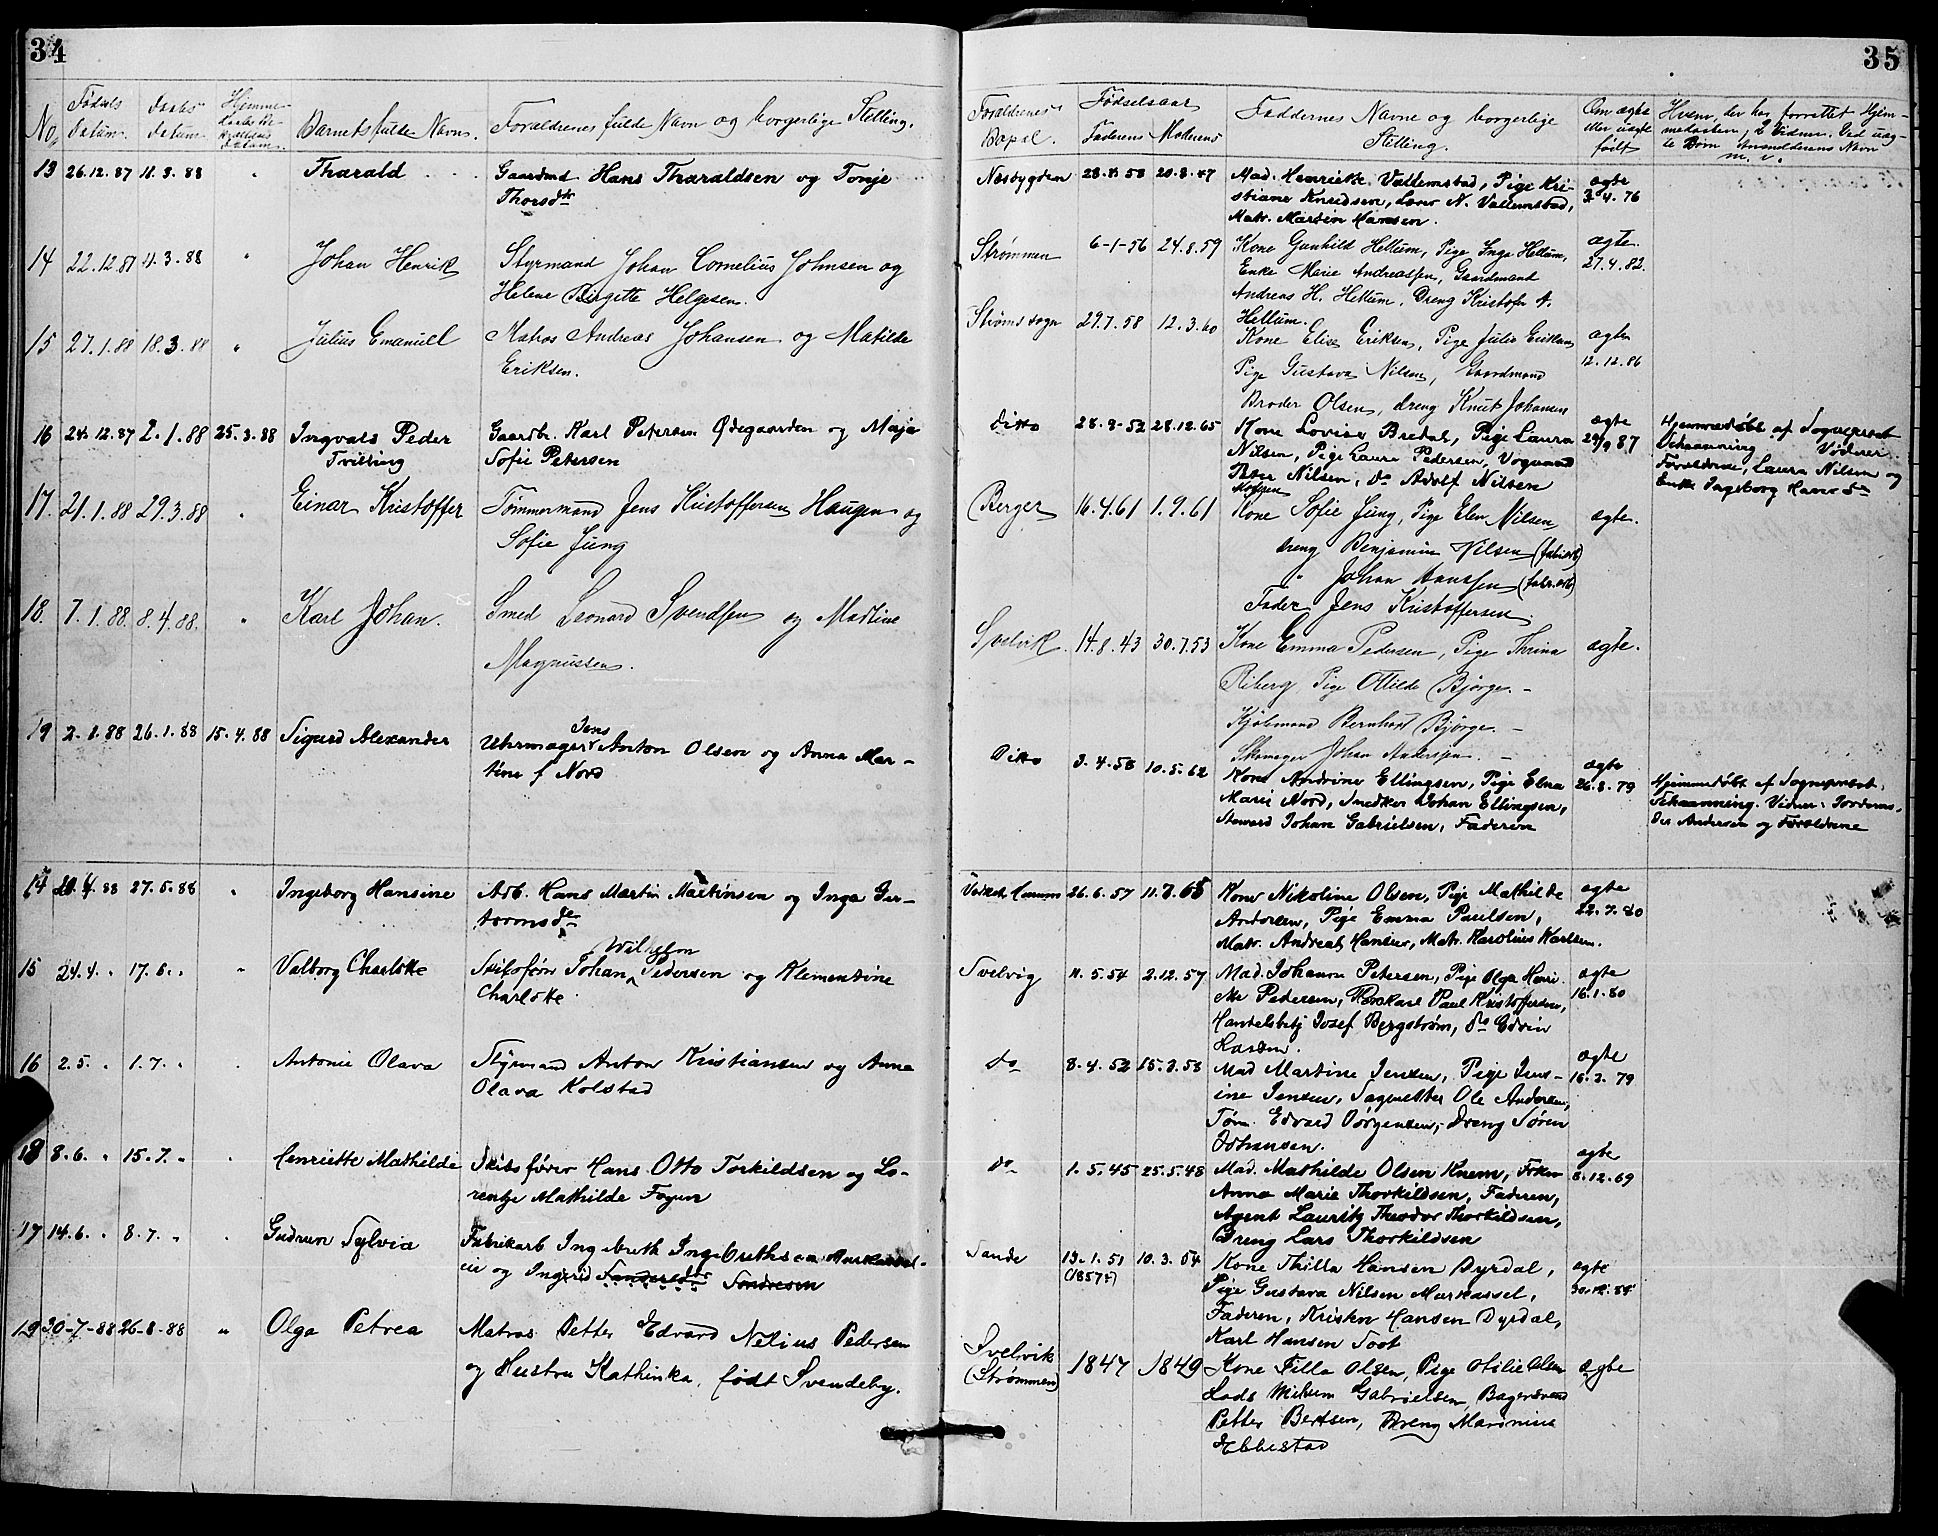 34
No.
Fødsels Datum.
Daabs Datum.
Hjemmedaabs Bekræftelses Datum.
Barnets fulde Navn.
Forældrenes fulde Navn og borgerlige Stilling.
13 26.12.87 11.3.88 " Tharald Gaardmd Hans Tharaldsen og Tonje
Thorsdtr
14 22.12.87 11.3.88 " Johan Henrik Styrmand Johan Cornelius Johnsen og
Helene Birgitte Helgesen.
15 27.1.88 18.3.88 " Julius Emanuel Matros Andreas Johansen og Matilde
Eriksen.
16 24.12.87 2.1.88 25.3.88 Ingvald Peder Gaardbr. Karl Petersen Ødegaarden og Maja
Tvilling Sofie Petersen
17. 21.1.88 29.3.88 " Einar Kristoffer Tømmermand Jens Kristoffersen Haugen og
Sofie Jung
18. 7.1.88. 8.4.88. " Karl Johan. Smed Leonard Svendsen og Matline
Magnussen.
19 2.1.88 26.1.88 15.4.88 Sigurd Alexander Uhrmager Jens Anton Olsen og Anna Mar-
tine f Nord
14 20.4.88 27.5.88 " Ingeborg Hansine Arb. Hans Martin Martinsen og Inga Gu-
tormsd
15 24.4. " 17.6. " " Valborg Charlotte Skibsfører Johan Wilhelm Pedersen og Klementine
Charlotte
16 2.5. " 1.7. " " Antonie Olava Styrmand Anton Kristiansen og Anna
Olava Kolstad
18 8.6. " 15.7. " Henriette Mathilde Skibsfører Hans Otto Torkildsen og Lo-
rentze Mathilde Foyen
17 14.6. " 8.7. " " Gudrun Sylvia Fabrikarb Ingebreth Ingebrethsen
og Ingerid Sondresen
19 30-7-88 26-8-88 " Olga Petrea Matros Petter Edvard Nelius Pedersen
og Hustru Kathinka, født Svendeby.
35
Forældrenes Bopæl.
Fødselsaar
Faderens Moderens
Faddernes Navne og borgerlige
Stilling.
Om ægte
eller uægte
født
Hvem, der har forrettet Hjem-
medaaben, 2 Vidner. Ved uæg-
te Børn Anmelderens Navn
m. v.
Næsbygden 20.8.47 Mad. Henrikke Vallemstad, Pige Kri- ægte
stiane Knudsen, Lars N. Vallemstad, 3.4.76
Matr. Martin Hansen.
Strømmen 6-1-56 24.8.59 Kone Gunhild Hellum, Pige Inga Hellum, ægte.
Enke Marie Andreassen, Gaardmand 27.4.82.
Andreas H. Hellum, Dreng Kristofer A.
Hellum.
Strømssogn 29.7.58 12.3.60 Kone Elise Eriksen, Pige Julie Eriksen ægte
Pige Gustava Nilsen, Gaardmand 12.12.86
Broder Olsen, dreng Knut Johansen
Ditto 28.8-52 28.12.65 Kone Lovise Bredal, Pige Laura ægte
Nilsen, Pige Laura Pedersen, Vognmand 29/9 87
Peter Nilsen, do Adolf Nilsen
Hjemmedøbt af Sogneprest
Schaanning Vidner:
Forældrene, Laura Nilsen og
Enke Ingeborg
Berger 16.4.61 1.9.61 Kone Sofie Jung, Pige Elen Nilsen ægte.
Moderen
dreng Benjamin Nilsen (fabrark)
" Johan Hanssen (fabr.arb)
Fader Jens Kristoffersen.
Svelvik. 14.8.43 30.7.53 Kone Emma Pedersen, Pige Thrina ægte.
Riberg, Pige Otilde Bjørge. -
Kjøbmand Bernhard Bjørge. -
Skomager Johan Andersen. -
Ditto 3.4.58 10.5.62 Kone Andrine Ellingsen, Pige Elna ægte
Marie Nord, Snedker Johan Ellingsen, 26.8.79
Steward Johan Gabrielsen, Faderen
Hjemmedøbt af Sogneprest
Schaanning. Vidner: Jordemo-
der Andersen og Forældrene
26.6.57 11.7.65 Kone Nikoline Olsen, Pige Mathilde ægte
Andersen, Pige Emma Paulsen, 22.7.80
Matr. Andreas Hansen, Matr. Karolius Karlsen.
Svelvig 11.5.54 2.12.57 Mad. Johanne Petersen, Pige Olga Henri- ægte
kke Pedersen, Ungkarl Paul Kristoffersen, 16.1.80
Handelsbetj Josef Bergstrøm, do Edvin
do 8.4.52 15.3.58 Mad Martine Jensen, Pige Jens- ægte
ine Jensen, Sagmester Ole Andersen, 16.3.79
Tøm. Edvard Jørgensen, Dreng Søren
Johansen.
do 1.5.45 25.5.48 Mad. Mathilde Olsen Knem, Frkn ægte
Anna Marie Thorkildsen, Faderen, 8.12.69
Agent Lauritz Theodor Thorkildsen,
Dreng Lars Thorkildsen
Sande 13.1.51 10.3.54 Kone Thilla Hansen Dyrdal, ægte
(1857?) Pige Gustava Nilsen Markassel,
Faderen, Kristen Hansen Dyrdal,
Karl Hansen Toot
Svelvik 1847 1849 Kone Tilla Olsen, Pige Otilie Olsen ægte
(Strømmen) Lods Gabrielsen, Bagersvend
Petter Bertsen, Dreng Marinius
Ebbestad